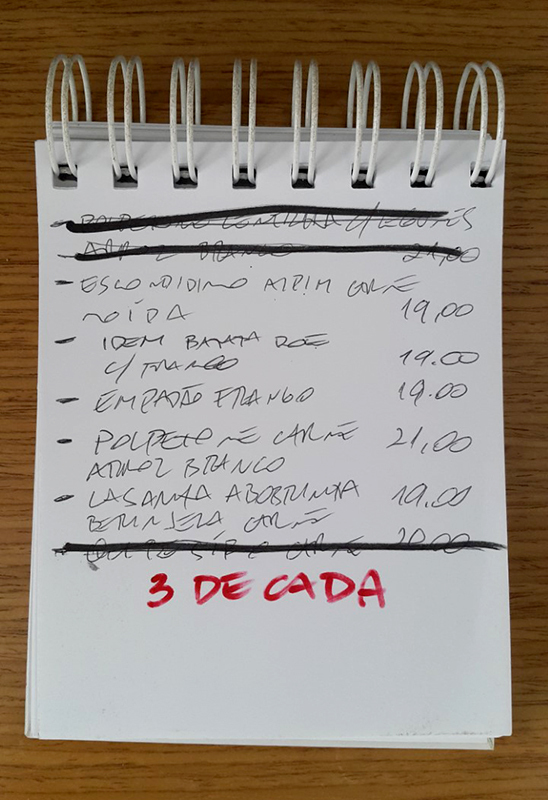 C/ LEGUMES
ARROZ BRANCO 21,00
- ESCONDIDINHO AIPIM CARNE
MOÍDA 19,00
- IDEM BATATA DOCE
C/ FRANGO 19.00
- EMPADÃO FRANGO 19.00
- POLPETONE CARNE 21,00
ARROZ BRANCO
- LASANHA ABOBRINHA 19.00
BERINJELA CARNE
CARNE 20.00
3 DE CADA